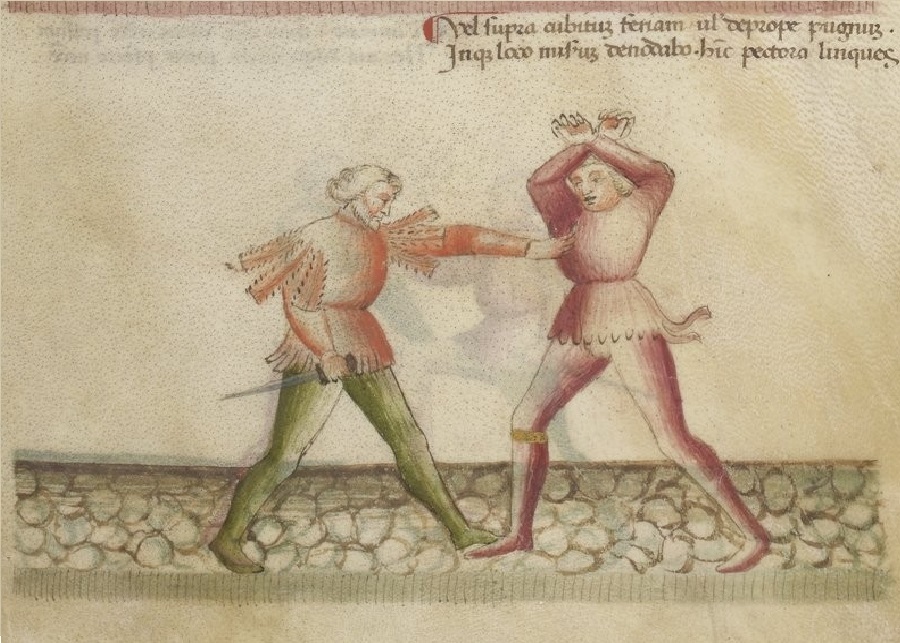 Vel supra cubituʒ feriam ul deprope pugnuʒ.
Inqʒ loco misuʒ denodabo. hic pectora linques